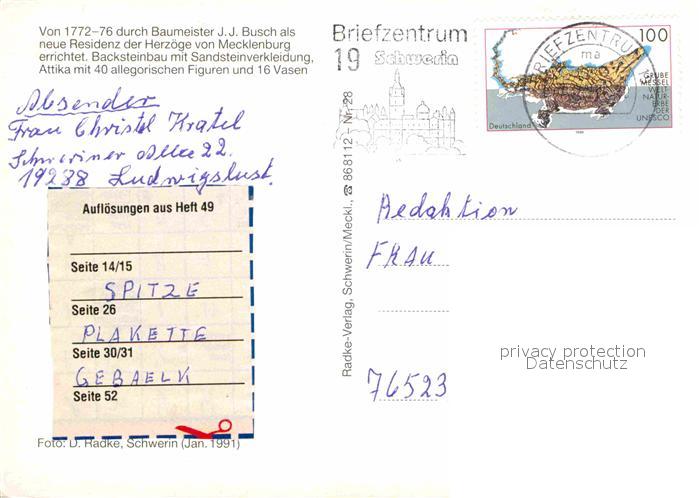 Von 1772–76 durch Baumeister J. J. Busch als
neue Residenz der Herzöge von Mecklenburg
errichtet. Backsteinbau mit Sandsteinverkleidung,
Attika mit 40 allegorischen Figuren und 16 Vasen
Absender
Frau Christel Kratel
Schweriner Allee 22.
19288 Ludwigslust.
Auflösungen aus Heft 49
Seite 14/15
SPITZE
Seite 26
PLAKETTE
Seite 30/31
GEBAELK
Seite 52
Foto: D. Radke, Schwerin (Jan. 1991)
Radke-Verlag, Schwerin/Meckl., ☎ 868112 – Nr. 28
Briefzentrum
19 Schwerin
BRIEFZENTRUM
ma
100
GRUBE
MESSEL
WELT
NATUR-
ERBE
DER
UNESCO
Deutschland
Redaktion
FRAU
76523
privacy protection
Datenschutz